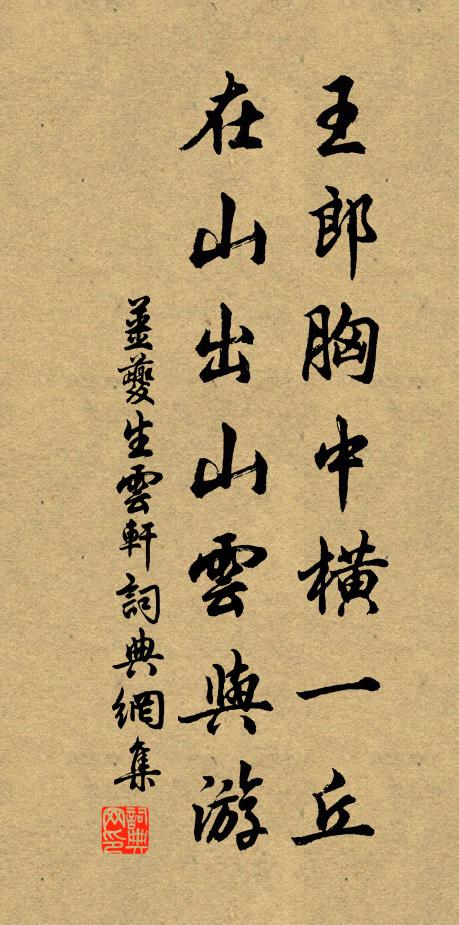 王郎胸中橫一丘
在山出山雲與游
姜夔生雲軒詞典網集
詞典网印